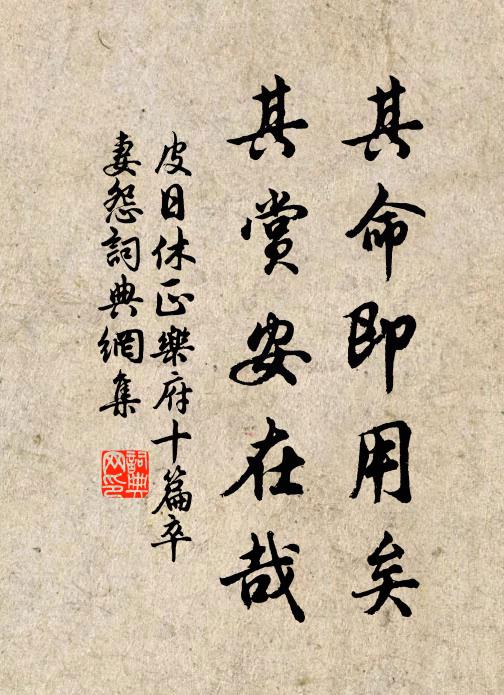 其命即用矣
其賞安在哉
皮日休正樂府十篇卒
妻怨詞典網集
詞典
网印